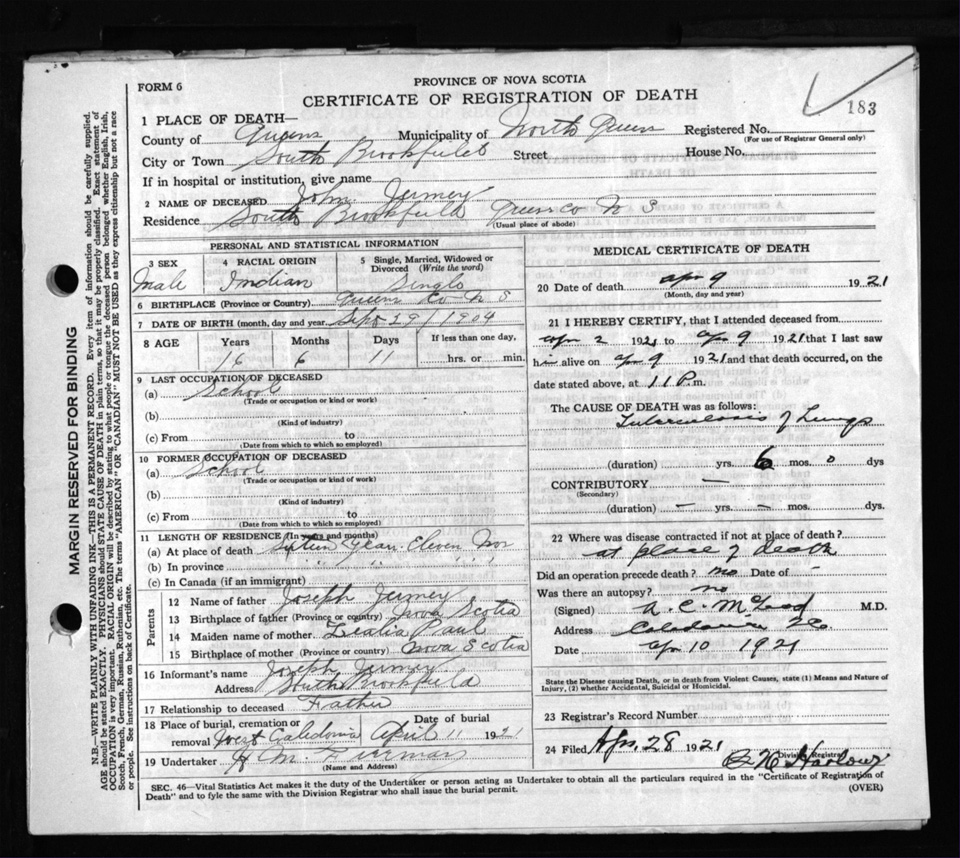 FORM 6
PROVINCE OF NOVA SCOTIA
CERTIFICATE OF REGISTRATION OF DEATH
183
1 PLACE OF DEATH—
County of Queens Municipality of North Queens Registered No.
(For use of Registrar General only)
City or Town South Brookfield Street House No.
If in hospital or institution, give name
2 NAME OF DECEASED John Jermey
Residence South Brookfield Queens Co N S
(Usual place of abode)
PERSONAL AND STATISTICAL INFORMATION
3 SEX Male
4 RACIAL ORIGIN Indian
5 Single, Married, Widowed or Divorced (Write the word) Single
6 BIRTHPLACE (Province or Country) Queens Co N S
7 DATE OF BIRTH (month, day and year) Sept 29/1904
8 AGE Years Months Days If less than one day,
16 6 11 hrs. or min.
9 LAST OCCUPATION OF DECEASED
(a) School
(Trade or occupation or kind of work)
(b)
(Kind of industry)
(c) From to
(Date from which to which so employed)
10 FORMER OCCUPATION OF DECEASED
(a) School
(Trade or occupation or kind of work)
(b)
(Kind of industry)
(c) From to
(Date from which to which so employed)
11 LENGTH OF RESIDENCE (In years and months)
(a) At place of death Sixteen Years Eleven Mos
(b) In province " " " "
(c) In Canada (if an immigrant)
Parents
12 Name of father Joseph Jermey
13 Birthplace of father (Province or country) Nova Scotia
14 Maiden name of mother Paul
15 Birthplace of mother (Province or country) Nova Scotia
16 Informant's name Joseph Jermey
Address South Brookfield
17 Relationship to deceased Father
18 Place of burial, cremation or removal West Caledonia Date of burial April 11 1921
19 Undertaker H M
(Name and Address)
MEDICAL CERTIFICATE OF DEATH
20 Date of death Apr 9 1921
(Month, day and year)
21 I HEREBY CERTIFY, that I attended deceased from
Apr 2 1921 to Apr 9 1921 that I last saw
him alive on Apr 9 1921 and that death occurred, on the
date stated above, at 11 P.m.
The CAUSE OF DEATH was as follows:
Tuberculosis of Lungs
(duration) yrs. 6 mos. 0 dys
CONTRIBUTORY —
(Secondary)
(duration) — yrs. — mos. — dys.
22 Where was disease contracted if not at place of death?
at place of death
Did an operation precede death? no Date of -
Was there an autopsy? no
(Signed) M.D.
Address Caledonia
Date Apr 10 1921
State the Disease causing Death, or in death from Violent Causes, state (1) Means and Nature of
Injury, (2) whether Accidental, Suicidal or Homicidal.
23 Registrar's Record Number
24 Filed Apr. 28 1921
Division Registrar
Harlow
SEC. 46—Vital Statistics Act makes it the duty of the Undertaker or person acting as Undertaker to obtain all the particulars required in the "Certificate of Registration of
Death" and to fyle the same with the Division Registrar who shall issue the burial permit.
(OVER)
MARGIN RESERVED FOR BINDING
N.B.—WRITE PLAINLY WITH UNFADING INK—THIS IS A PERMANENT RECORD. Every item of information should be carefully supplied.
AGE should be stated EXACTLY. PHYSICIANS should STATE CAUSE OF DEATH in plain terms, so that it may be properly classified. Exact statement of
OCCUPATION is very important. RACIAL ORIGIN will be described by stating to what people or tongue the deceased person belonged whether English, Irish,
Scotch, French, German, Russian, Ruthenian, etc. The terms "AMERICAN" OR "CANADIAN" MUST NOT BE USED as they express citizenship but not a race
or people. See instructions on back of Certificate.